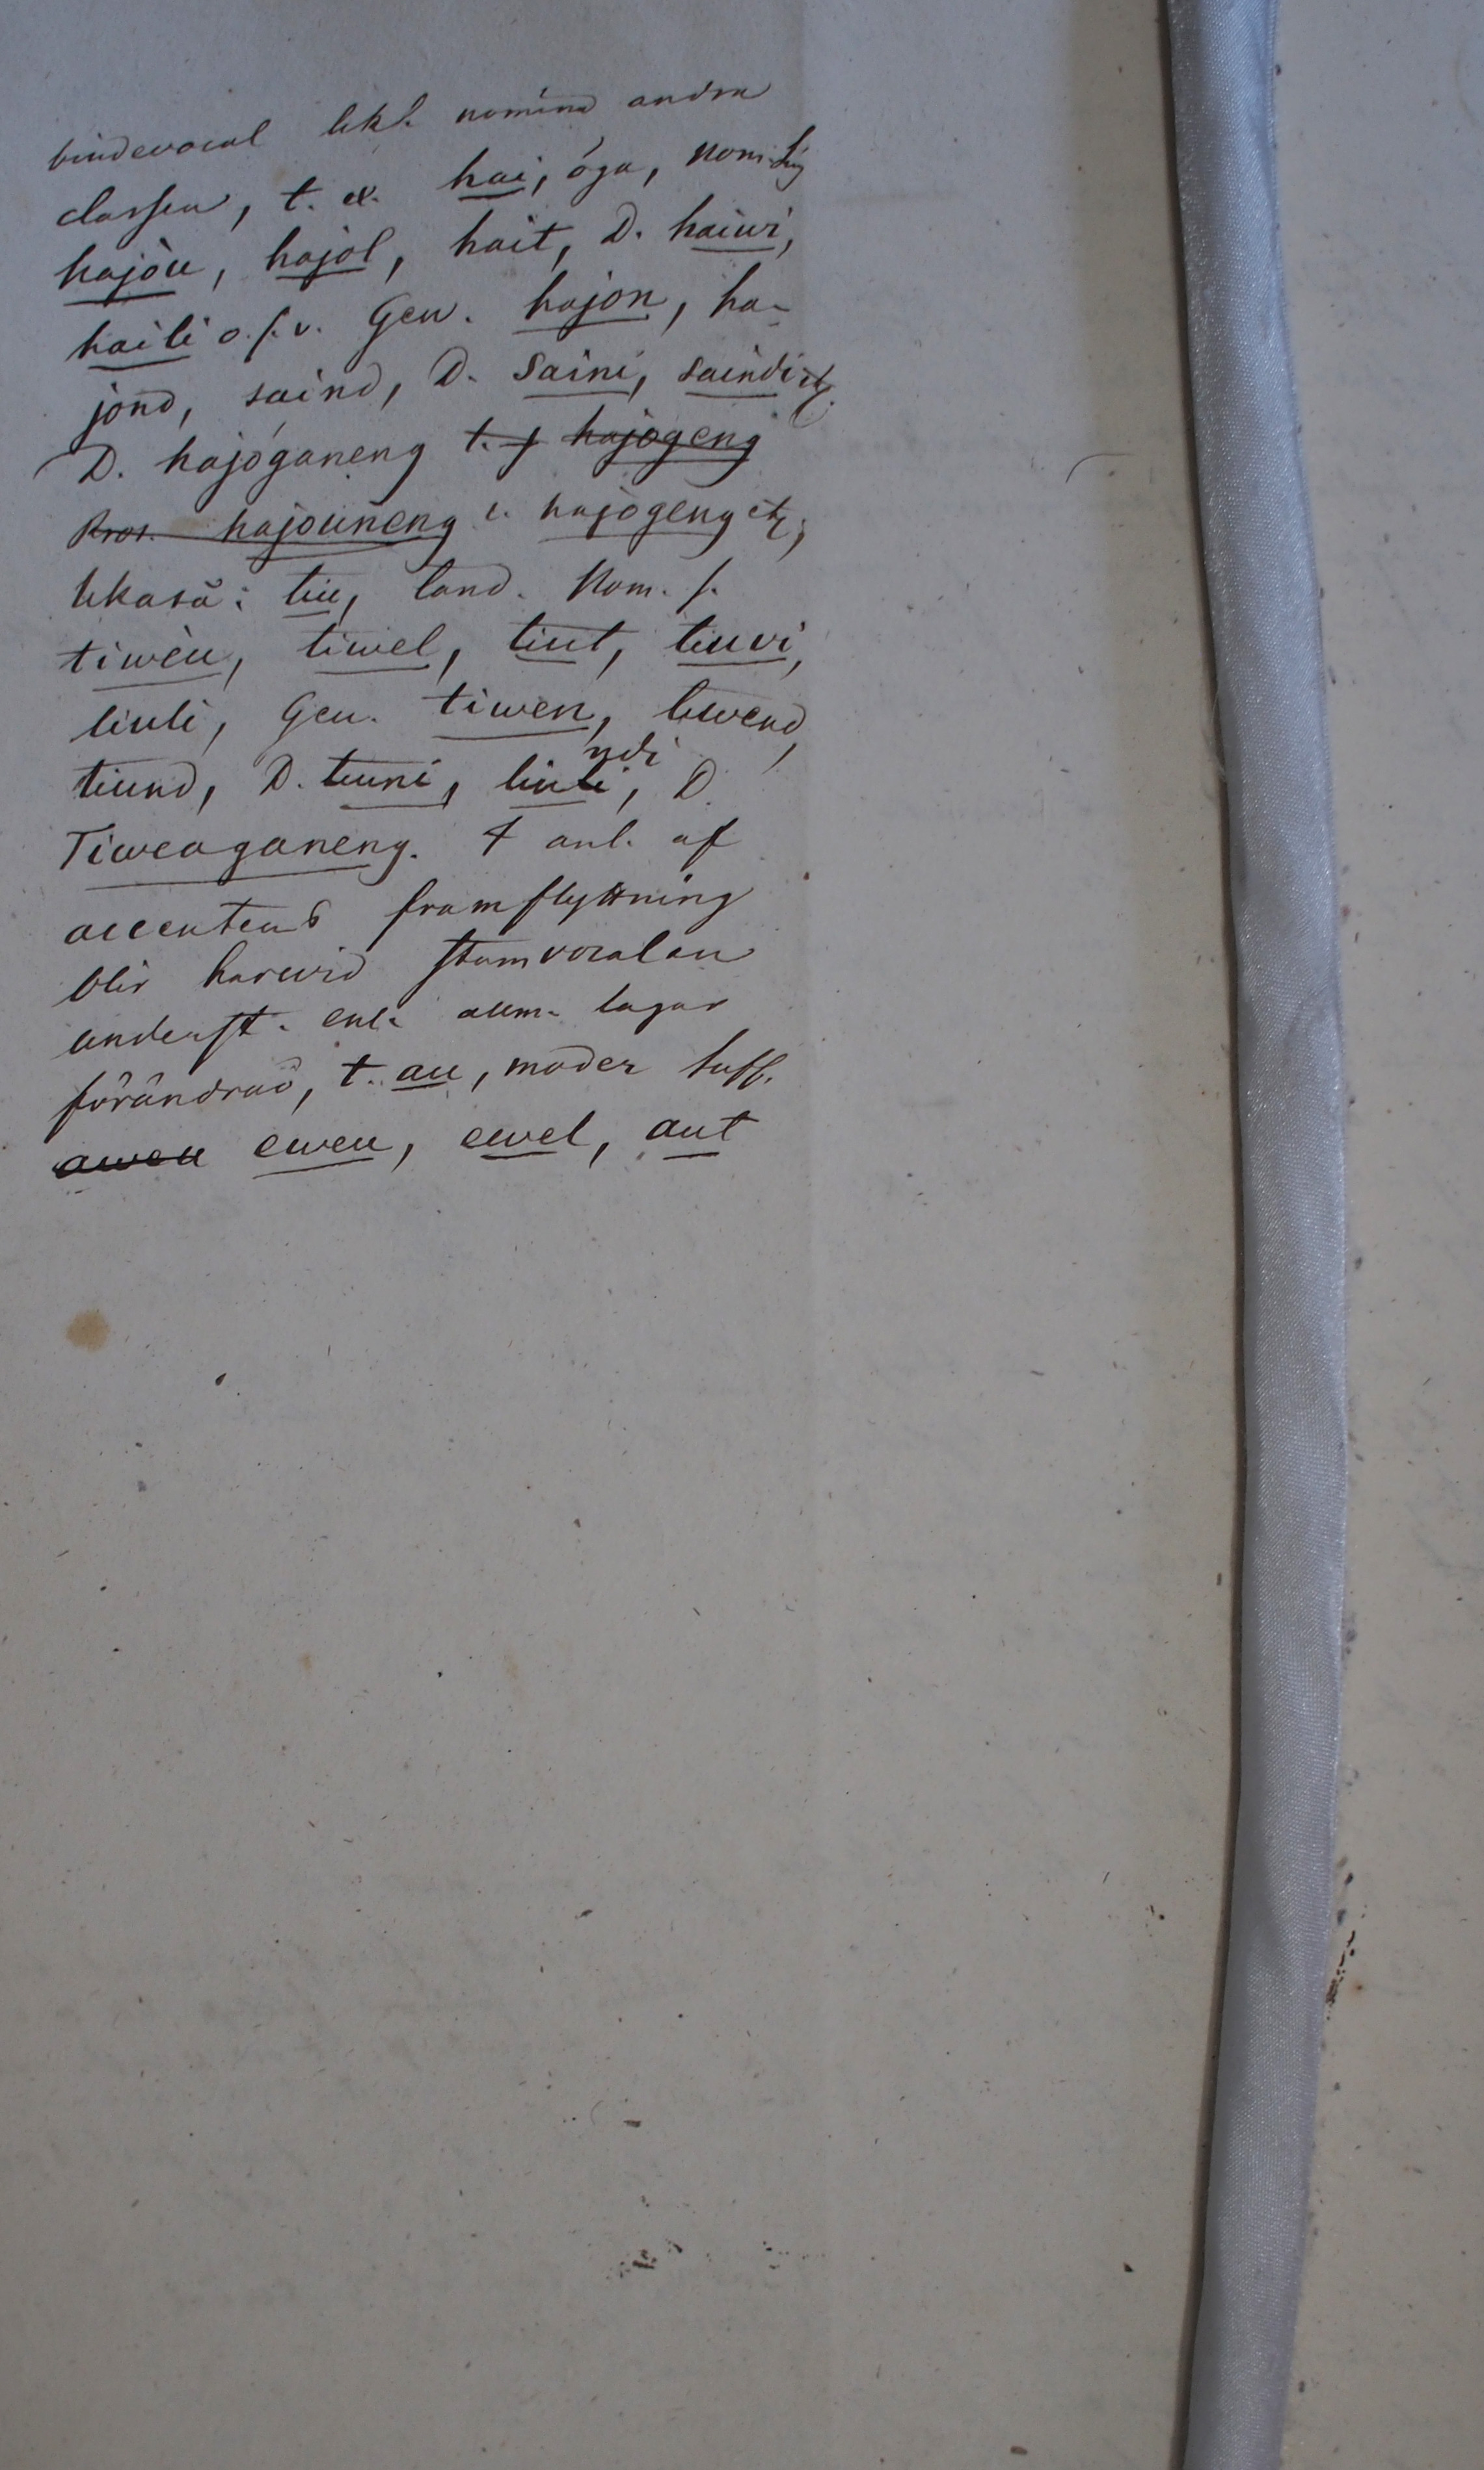 bindevocal likt nomina andra
classen, t. ex. hai, öga, Nom. sing
hajòu, hajol, hait, D. haiwi,
haili o.s.v. Gen. hajon, ha-
jond, saind, D. Saini, saindi etc.
D. hajóganeng t. f hajogeng
hajouneng l. hajogeng etc;
likaså: tiu, land. Nom. s.
tiwèu, tiwel, tiut, tiuvi,
tiuli, Gen. tiwen, tiwend,
tiund, D. tiuni, tiundi, D.
Tiweaganeng. I anl. af
accentens framflyttning
blir härwid stamvocalen
underst. enl. allm. lagar
förändrad, t. au, moder suff.
aweu eweu, ewel, aut